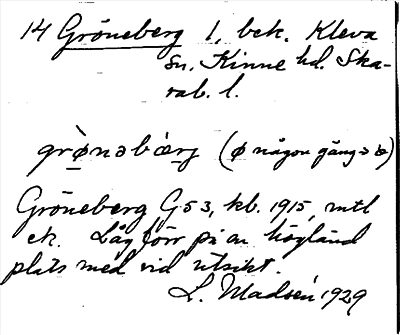 14 Gröneberg 1, bek. Kleva
sn. Kinne hd. Ska-
rab. l.
grø̀nəbæ̀rj (ø någon gång>ɵ)
Gröneberg G53, kb. 1915, mtl
ek. Låg förr på en högländ
plats med vid utsikt.
L. Madsén 1929